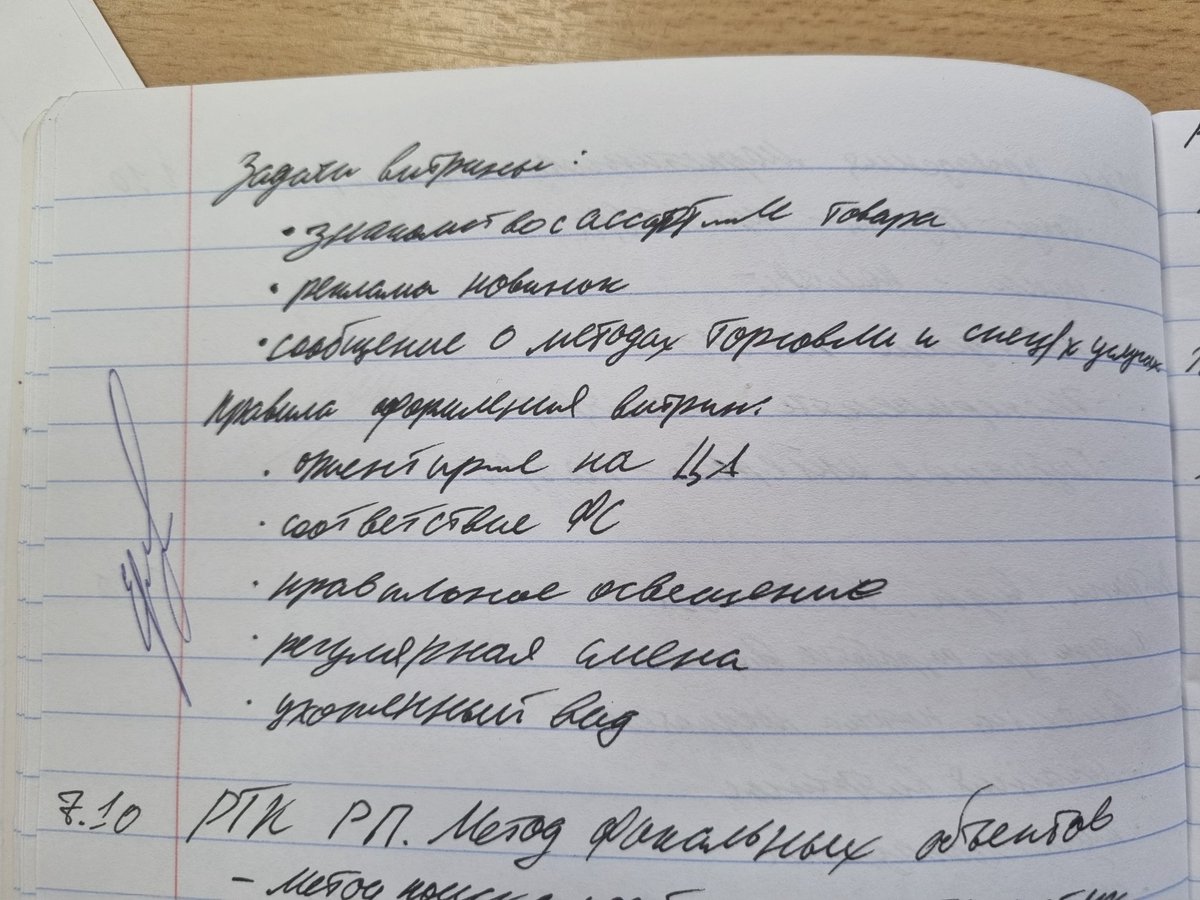 Задачи витрины:
• знакомство с ассорт-ом товара
• реклама новинок
• сообщение о методах торговли и спец/х услугах
Правила оформления витрин:
• ориентир-ие на ЦА
• соответствие ФС
• правильное освещение
• регулярная смена
• ухоженный вид
7.10 РТК РП. Метод фокальных объектов
- метод поиска